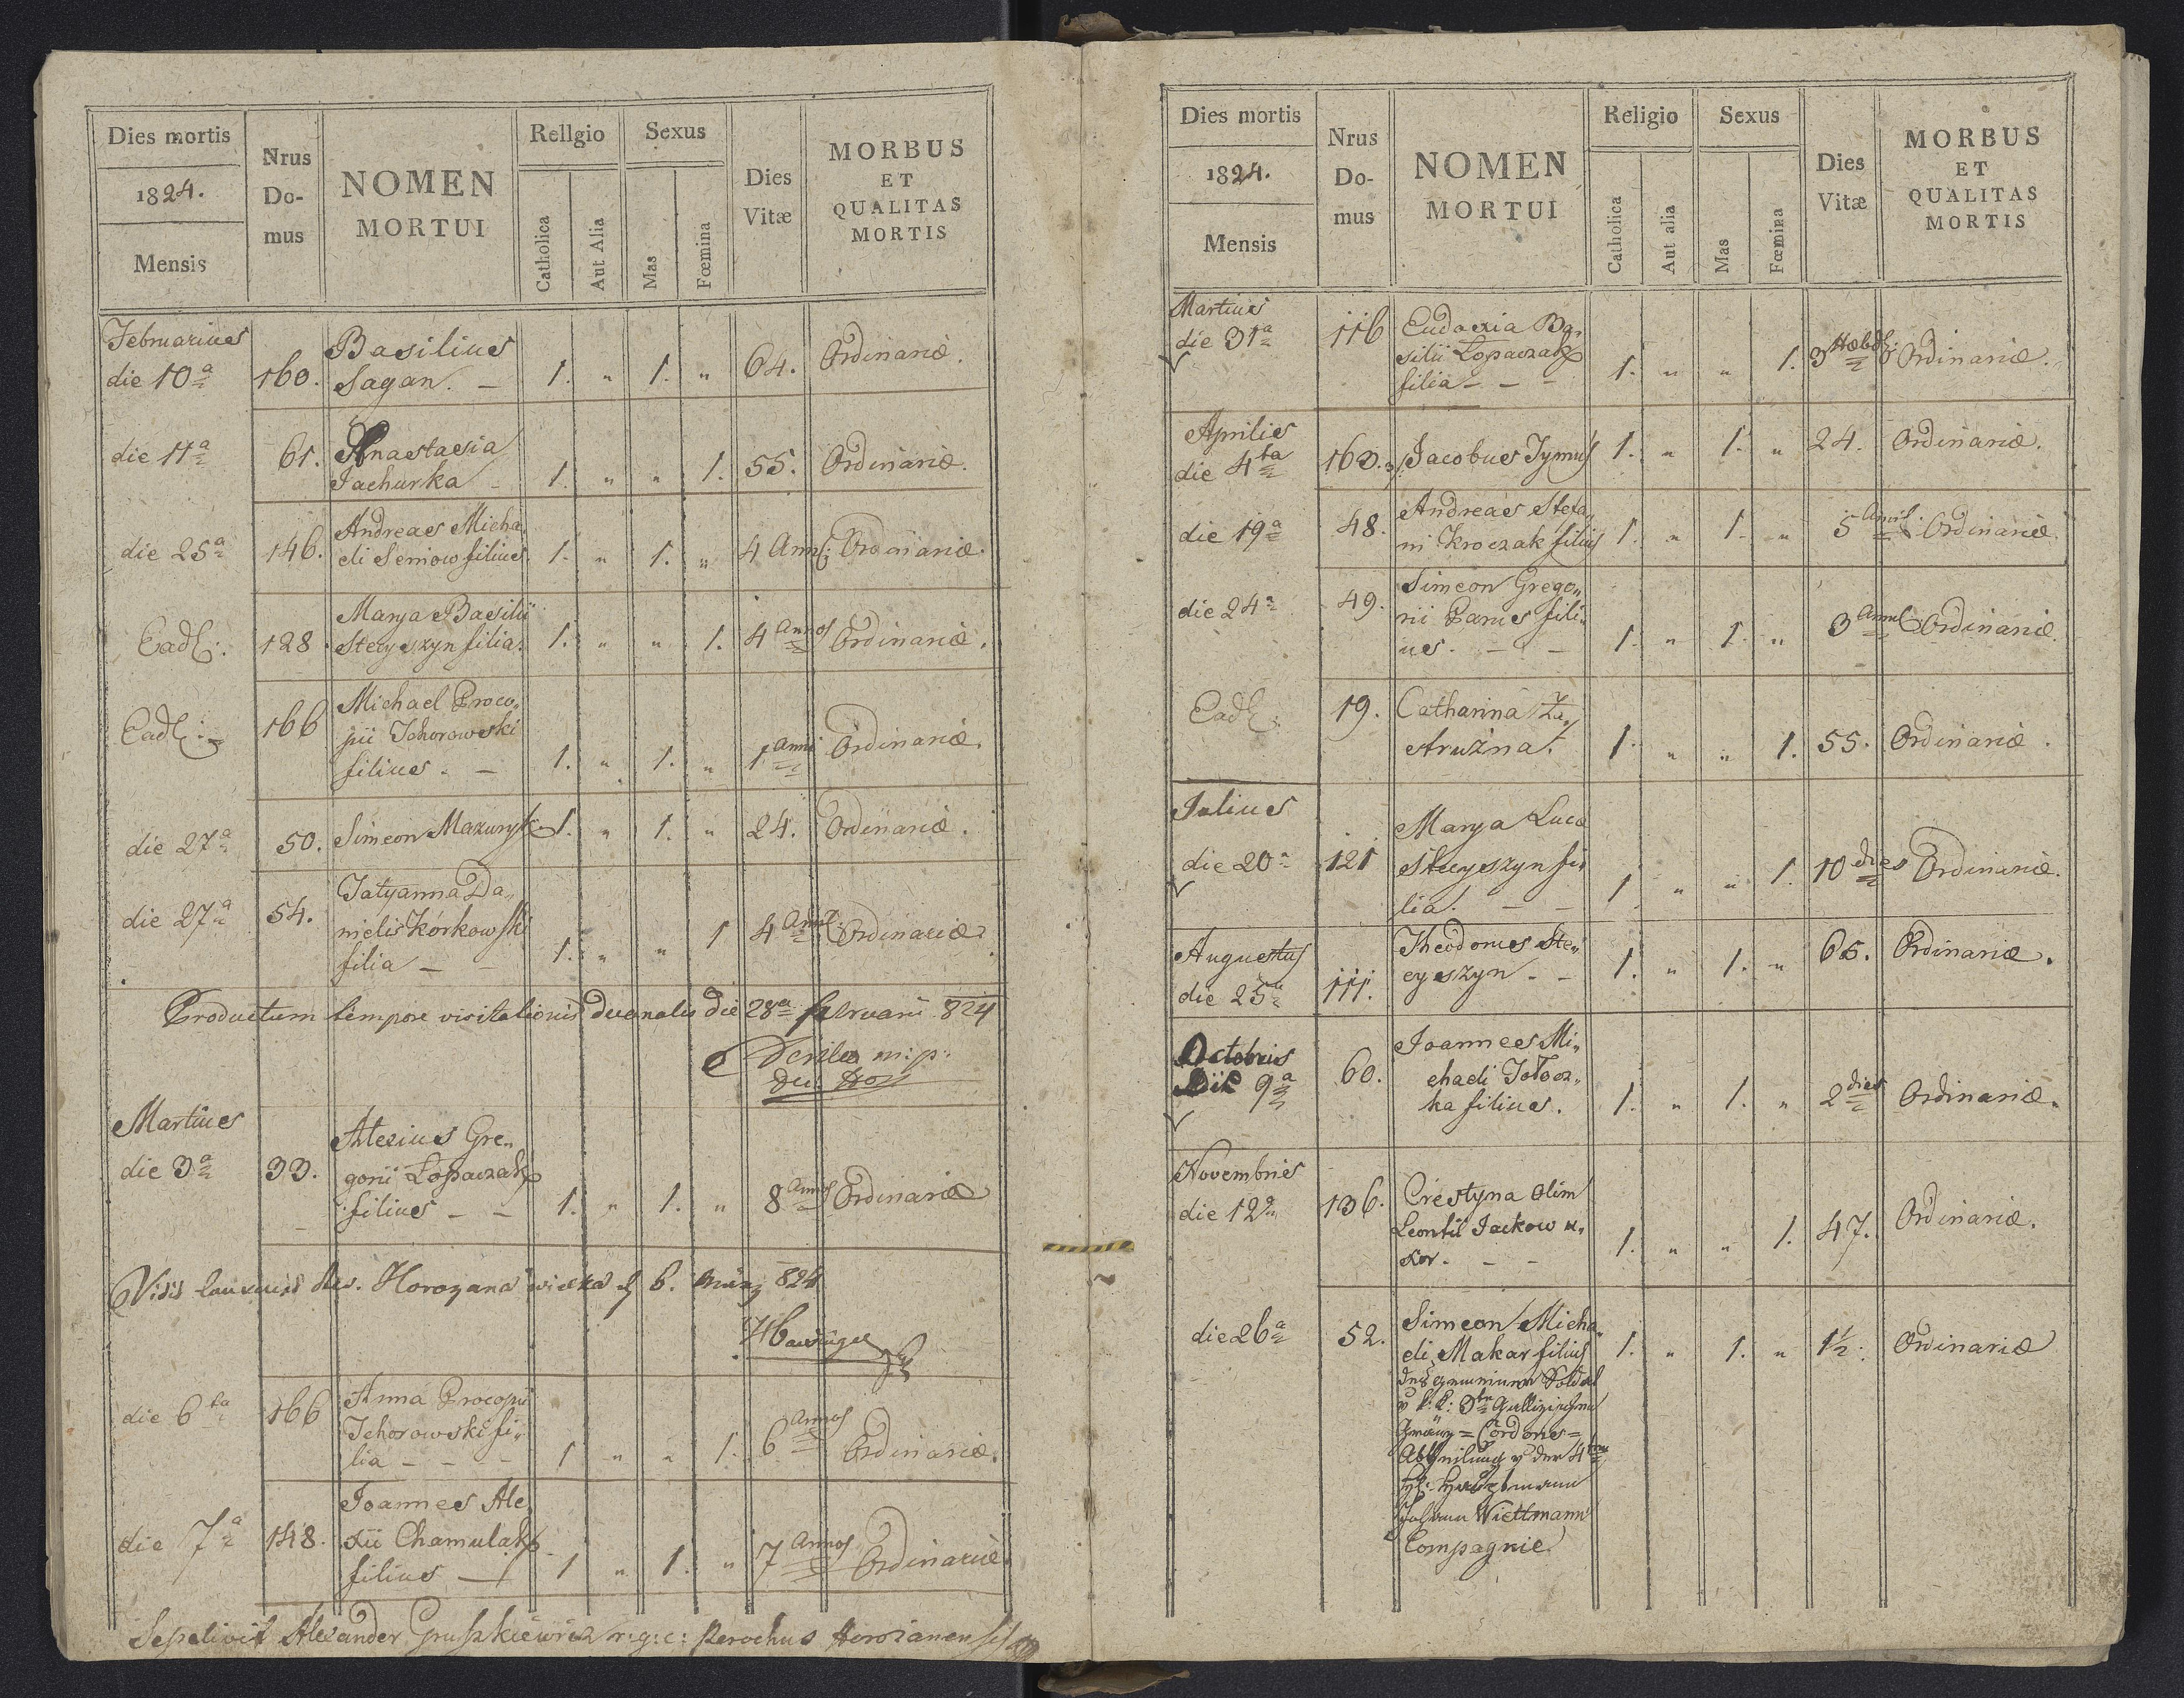 Dies mortis
1824.
Mensis
Nrus
Do-
mus
NOMEN
MORTUI
Rellgio
Catholica
Aut Alia
Sexus
Mas
Fœmina
Dies
Vitæ
MORBUS
ET
QUALITAS
MORTIS
Februarius
die 10a 160. Basilius
Sagan. – 1. " 1. " 64. Ordinariæ.
die 11a 61. Anastasia
Jachurka – 1. " " 1. 55. Ordinariæ.
die 25a 146. Andreas Micha
eli Seniow filius. 1. " 1. " 4 Ann: Ordinariæ.
Ead: 128. Marya Basilii
Stecyszyn filia. 1. " " 1. 4 Annos Ordinariæ.
Ead: 166 Michael Proco„
pii Tchorowski
filius. – 1. " 1. " 1 Anni Ordinariæ.
die 27a 50. Simeon Mazuryk 1. " 1. " 24. Ordinariæ.
die 27a 54. Tatyanna Da„
nielis Korkowski
filia – – 1. " " 1 4 Ann: Ordinariæ.
Productum tempore visitationis Decanalis die 28a februarii 824
m:p:
Martius
die 3a 33. Alexius Gre„
gorii Lopaczak
filius – – 1. " 1. " 8 Annos Ordinariæ
Horozana wielka d 6. März 824
die 6ta 166 Anna Procopii
Tchorowski fi„
lia – – – 1 " " 1. 6 Annos Ordinariæ.
die 7a 148. Joannes Ale
xii Chamulak
filius – 1 " 1. " 7 Annos Ordinariæ.
Sepelivit Alexander Gruszkiewicz r:g:c: Parochus Horozanensis
Dies mortis
1824.
Mensis
Nrus
Do-
mus
NOMEN
MORTUI
Religio
Catholica
Aut alia
Sexus
Mas
Fœmina
Dies
Vitæ
MORBUS
ET
QUALITAS
MORTIS
Martius
die 31a 116 Eudoxia Ba„
silii Lopaczak
filia – – – 1. " " 1. 3 Hebd: Ordinariæ.
Aprilis
die 4ta 160. Jacobus Tymus 1. " 1. " 24. Ordinariæ.
die 19a 48. Andreas Stefa„
ni Kroczak filius 1. " 1. " 5 Ann: Ordinariæ.
die 24a 49. Simeon Grego„
rii Panis fili„
us. – – 1. " 1. " 3 Ann: Ordinariæ.
Ead: 19. Catharina Za„
struzna. 1. " " 1. 55. Ordinariæ.
Julius
die 20a 121 Marya Lucæ
Stecyszyn fi„
lia. – – 1 " " 1. 10 dies Ordinariæ.
Augustus
die 25a 111. Theodorus Ste„
cyszyn – – 1. " 1. " 65. Ordinariæ.
Octobris
Die 9a 60. Joannes Mi„
chaeli Tołocz„
ka filius. 1. " 1. " 2 dies Ordinariæ.
Novembris
die 12a 136. Crestyna olim
Leontii Jackow u„
xor. – – 1. " " 1. 47. Ordinariæ.
die 26a 52. Simeon Micha„
eli Makar filius 1. " 1. " 1½. Ordinariæ
des gemeinen Soldat
v k: k: 3ten Gallizischen
Gränz = Cordons =
Abtheilung v der 4ten
H: Hauptmann
Johann Wiettmann
Compagnie